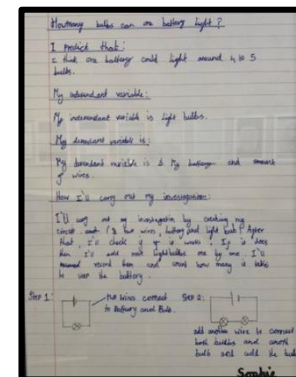 How many bulbs can one battery light?
I predict that:
I think one battery could light around 4 to 5
bulbs.
My independant variable:
My independant variable is light bulbs.
My dependant variable is:
My dependant variable is my battery and amount
of wires.
How I'll carry out my investigation:
I'll carry out my investigation by creating my
circuit (2 wires, battery and light bulb). After
that, I'll check if it works. If it does
then I'll add more lightbulbs one by one. I'll
record them and count how many it takes
to use the battery.
Step 1:
two wires connect
to battery and bulb.
Step 2:
add another wire to connect
both bulbs and another
bulb and add the bulb
Sophie